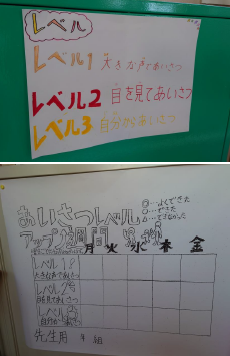 レベル
レベル1 大きな声であいさつ
レベル2 目を見てあいさつ
レベル3 自分からあいさつ
あいさつレベル
アップ週間
◎…よくできた
○…できた
△…できなかった
月 火 水 木 金
レベル1
大きな声であいさつ
レベル2
目を見てあいさつ
レベル3
自分からあいさつ
先生用 年 組